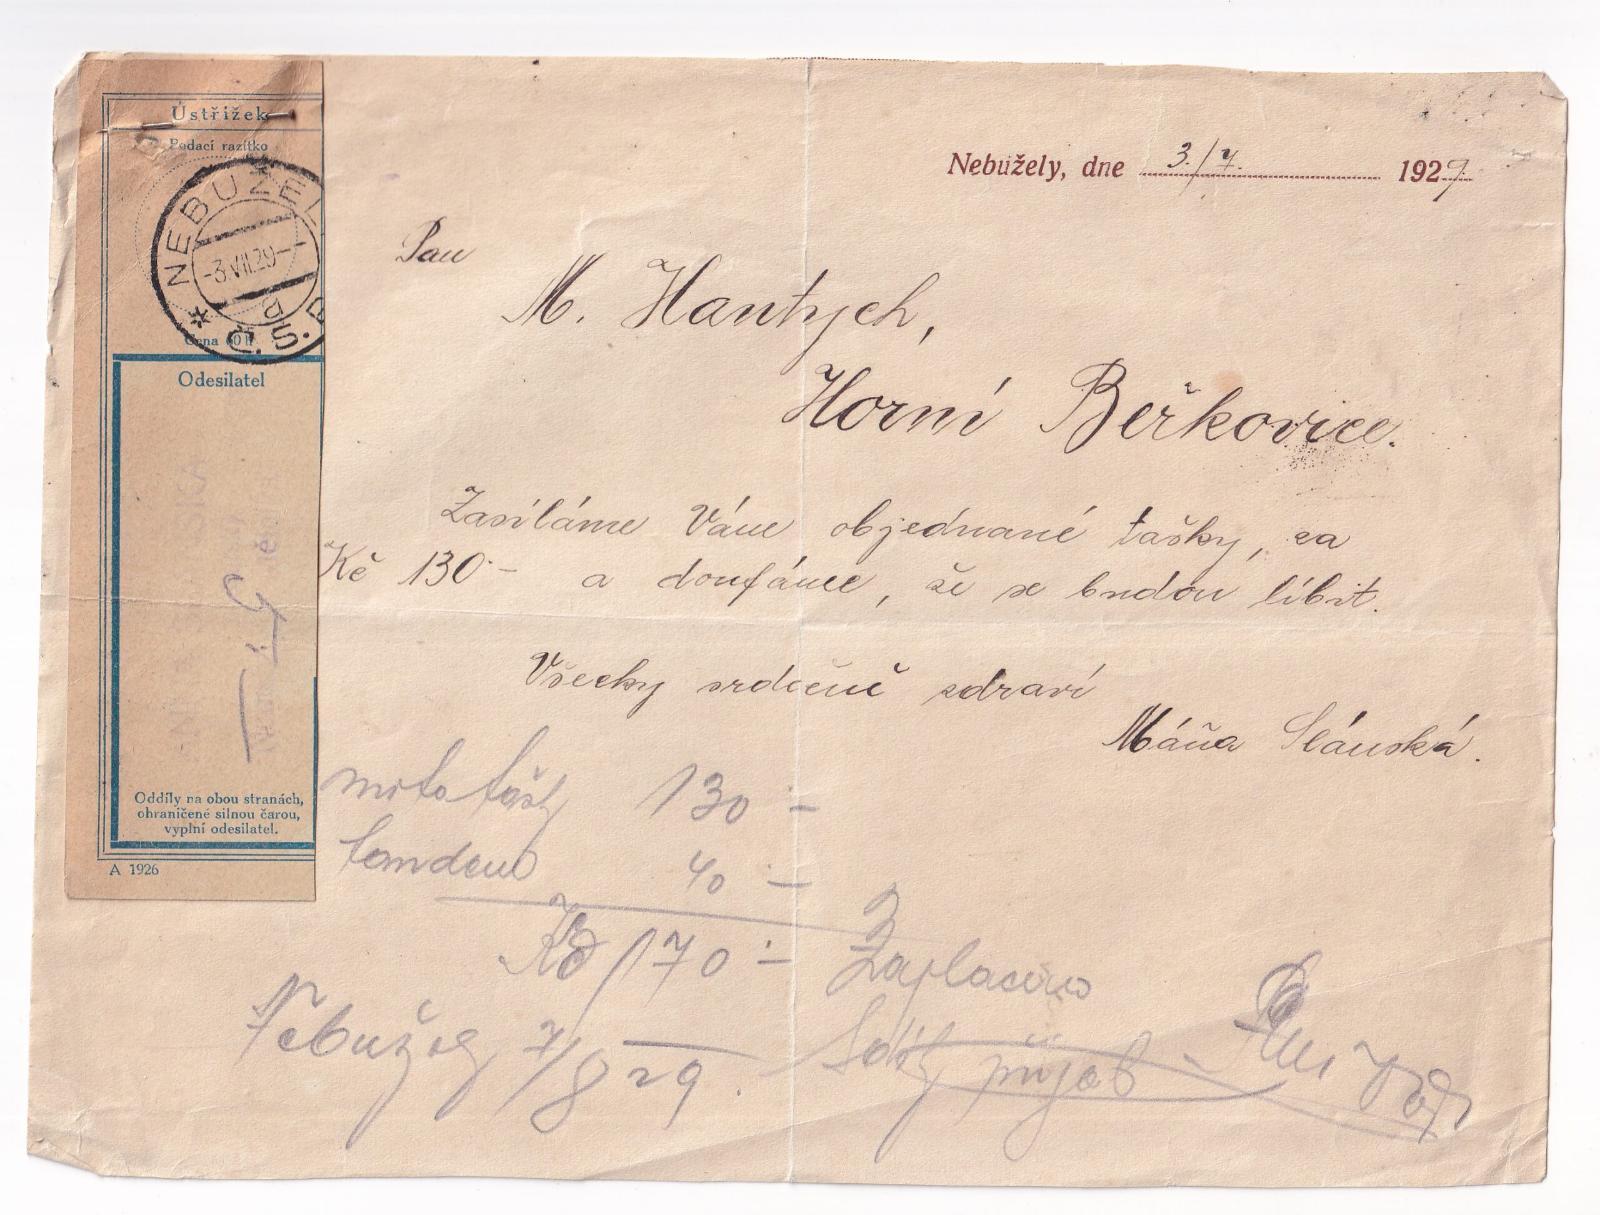 Ústřižek
Podací razítko
* NEBUŽEL
-3.VII.29-
Č.S.P
Cena 60 h
Odesilatel
Oddíly na obou stranách,
ohraničené silnou čarou,
vyplní odesilatel.
A 1926
Nebužely, dne 3./7. 1929
Pan
M. Hantych,
Horní Beřkovice.
Zasíláme Vám objednané tašky, za
Kč 130·- a doufáme, že se budou líbit.
Všecky srdečně zdraví
Máňa Slánská.
moto tašky 130 -
tandem 40 -
Kč 170 -
Zaplaceno
Nebužely 7/8 29.
přijal